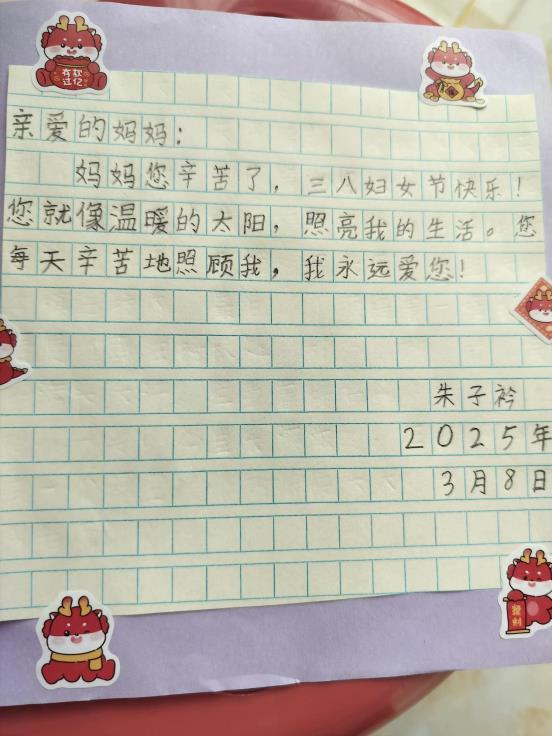 亲爱的妈妈：
妈妈您辛苦了，三八妇女节快乐！
您就像温暖的太阳，照亮我的生活。您
每天辛苦地照顾我，我永远爱您！
朱子衿
2025年
3月8日
存款
过亿